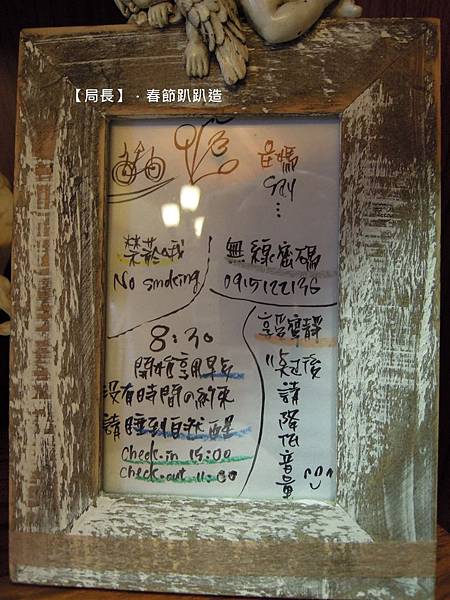 【局長】．春節趴趴造
宅媽
say
⋮
禁菸哦
No smoking
無線密碼
0915122136
8:30
開始享用早餐
沒有時間の約束
請睡到自然醒
check-in 15:00
check-out 11:00
享受寧靜
11點後
請降低音量